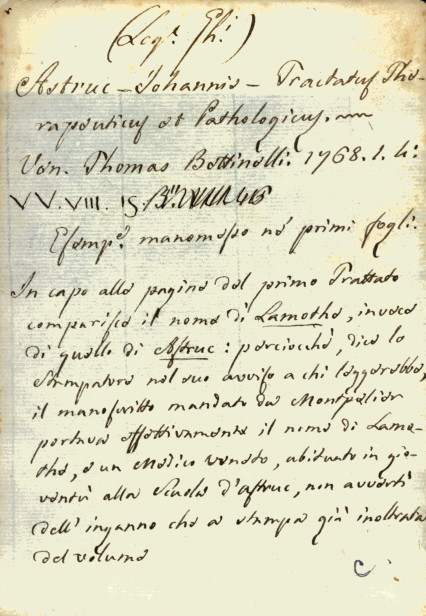 (Leg.r Ph.i)
Astruc – Johannis – Tractatus The-
rapeuticus et Pathologicus.
Ven. Thomas Bettinelli. 1768. 1. 4:
VV. VIII. 15.
Esemp.e manomesso ne' primi fogli.
In capo alle pagine del primo Trattato
comparisce il nome di Lamothe, invece
di quello di Astruc: perciocchè, dice lo
stampatore nel suo avviso a chi leggerebbe,
il manoscritto mandato da Montpelier
portava effettivamente il nome di Lamo-
the, e un Medico veneto, abituato in gio-
ventù alla Scuola d'astruc, non avvertì
dell'inganno che a stampa già inoltrata
del volume